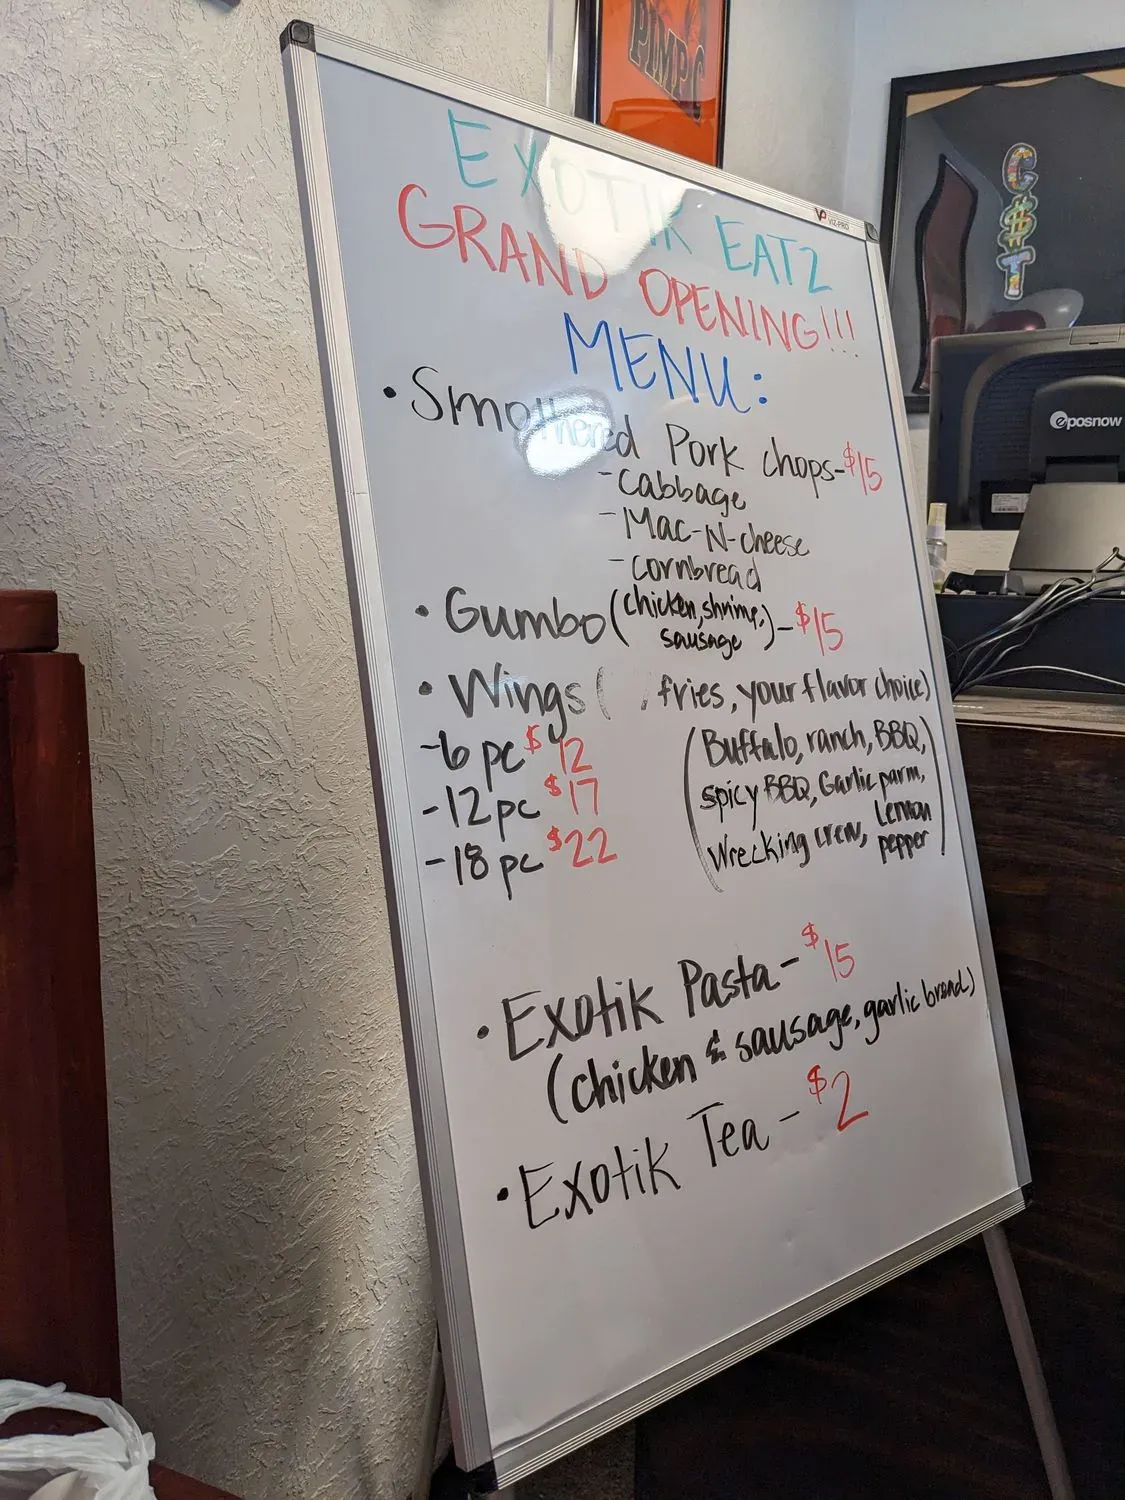 PIMP C
C$ST
VP VIZ-PRO
EXOTIK EATZ
GRAND OPENING!!!
MENU:
• Smothered Pork chops-$15
-Cabbage
-Mac-N-cheese
-cornbread
• Gumbo (chicken, shrimp, sausage)-$15
• Wings ( , fries, your flavor choice)
-6 pc $12
-12 pc $17
-18 pc $22
(Buffalo, ranch, BBQ,
spicy BBQ, Garlic parm,
Wrecking crew, Lemon pepper)
• Exotik Pasta-$15
(chicken & sausage, garlic bread)
• Exotik Tea-$2
eposnow